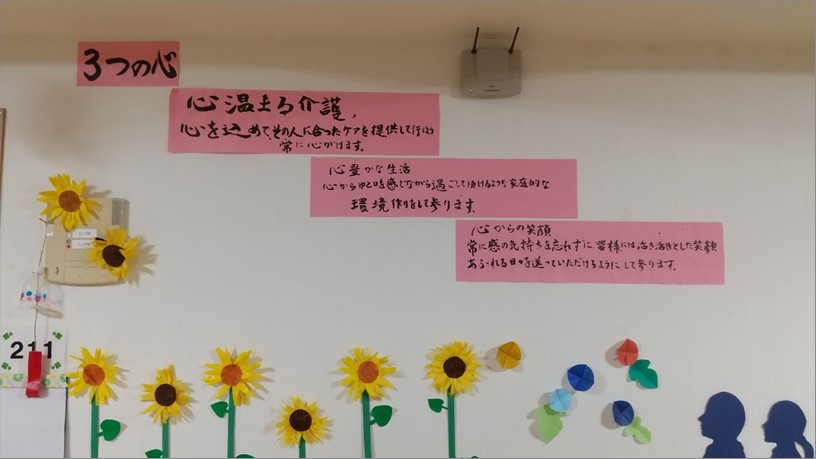 3つの心
心温まる介護、
心を込めて、その人に合ったケアを提供して行け
常に心がけます。
心豊かな生活
心からゆとりを感じながら過ごして頂けるような家庭的な
環境作りをして参ります。
心からの笑顔
常に感の気持ちを忘れずに皆様には活き活きとした笑顔
あふれる日々を送っていただけるようにして参ります。
211